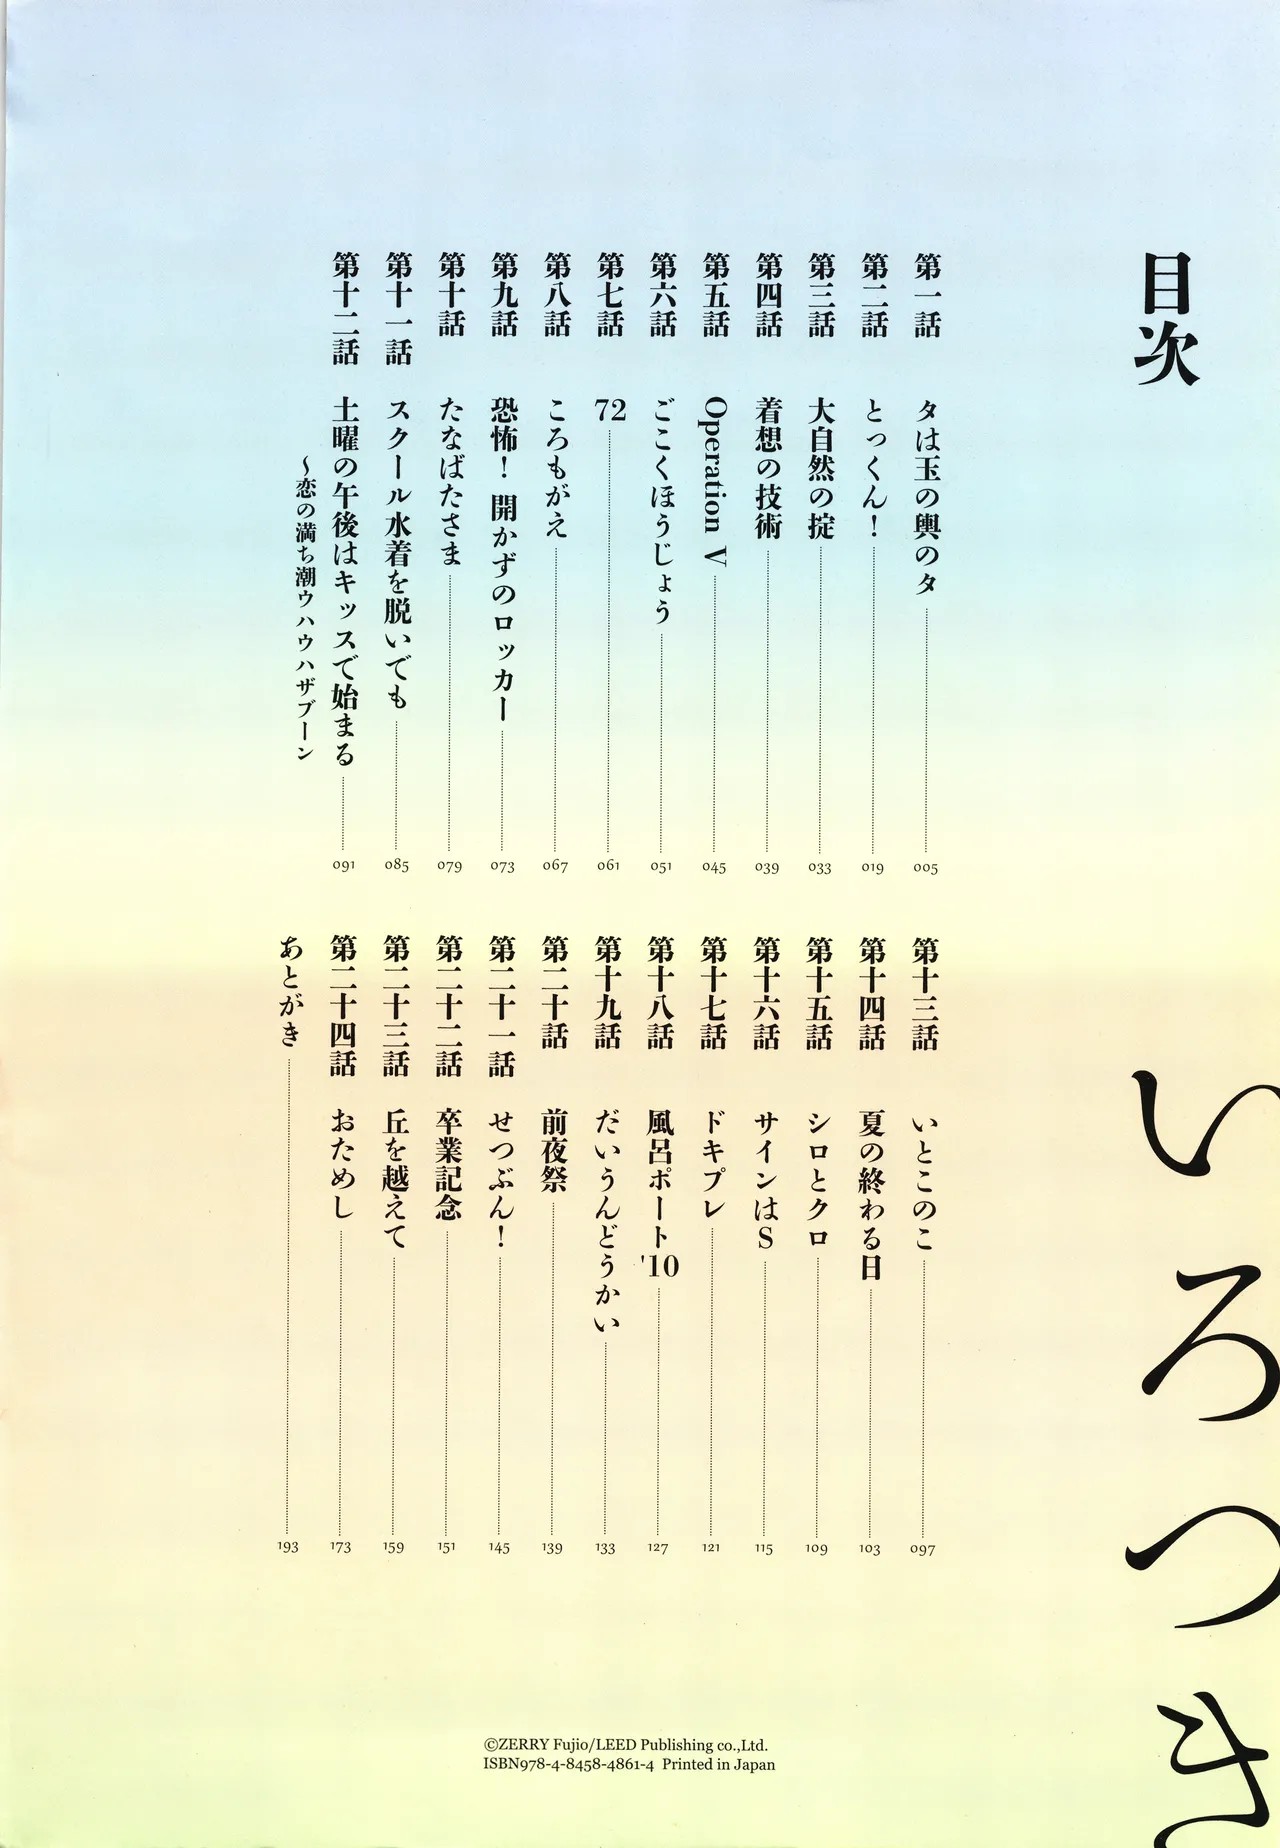 目次
いろつき
第一話 タは玉の輿のタ 005
第二話 とっくん！ 019
第三話 大自然の掟 033
第四話 着想の技術 039
第五話 Operation V 045
第六話 ごこくほうじょう 051
第七話 72 061
第八話 ころもがえ 067
第九話 恐怖！開かずのロッカー 073
第十話 たなばたさま 079
第十一話 スクール水着を脱いでも 085
第十二話 土曜の午後はキッスで始まる 091
～恋の満ち潮ウハウハザブーン
第十三話 いとこのこ 097
第十四話 夏の終わる日 103
第十五話 シロとクロ 109
第十六話 サインはS 115
第十七話 ドキプレ 121
第十八話 風呂ポート'10 127
第十九話 だいうんどうかい 133
第二十話 前夜祭 139
第二十一話 せつぶん！ 145
第二十二話 卒業記念 151
第二十三話 丘を越えて 159
第二十四話 おためし 173
あとがき 193
©ZERRY Fujio/LEED Publishing co.,Ltd.
ISBN978-4-8458-4861-4 Printed in Japan